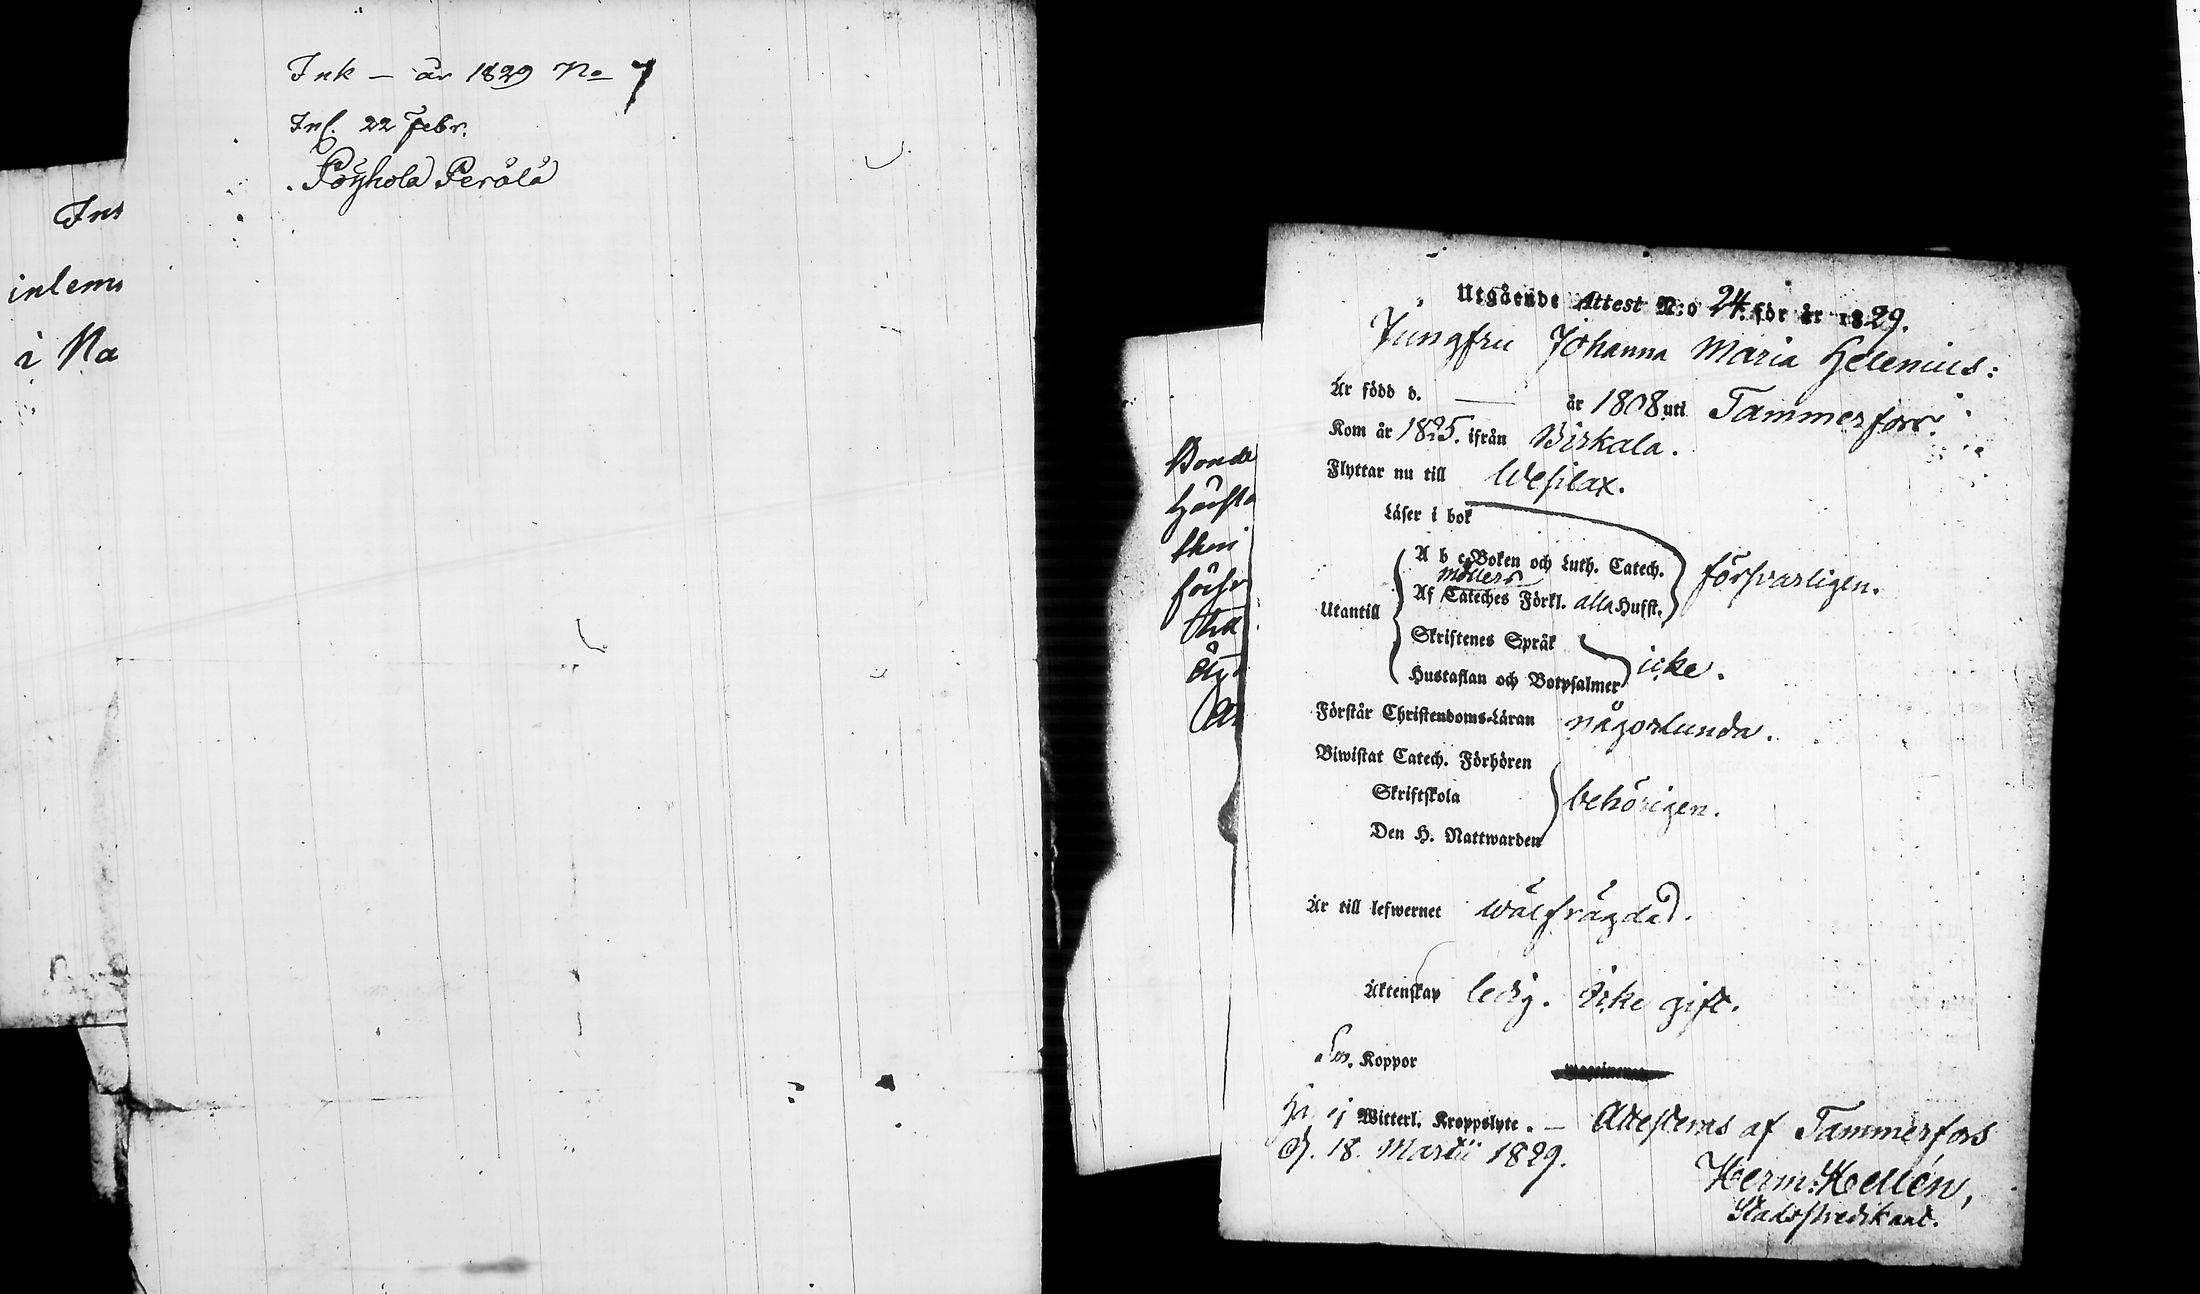 Ink – år 1829 No 7
Inl. 22 Febr.
Pöyhola Perälä
inlem
i Na
Bonde
Utgående Attest N:o 24. för år 1829.
Jungfru Johanna Maria Helenius:
Är född d. — år 1808 uti Tammerfors.
Kom år 1825. ifrån Birkala.
Flyttar nu till Wesilax.
Läser i bok
A b c-Boken och Luth. Catech.
försvarligen.
Möllers
Utantill
Af Cateches Förkl. alla Husft.
Skriftenes Språk
icke.
Hustaflan och Botpsalmer
Förstår Christendoms-Läran någorlunda.
Biwistat Catech. Förhören
Skriftskola
behörigen.
Den H. Nattwarden
Är till lefwernet wälfrägdad.
Äktenskap ledig. Icke gift.
Koppor
ej Witterl. Kroppslyte. – Attesteras af Tammerfors
d. 18. Martii 1829.
Herm: Hellén,
Stadspredikant.